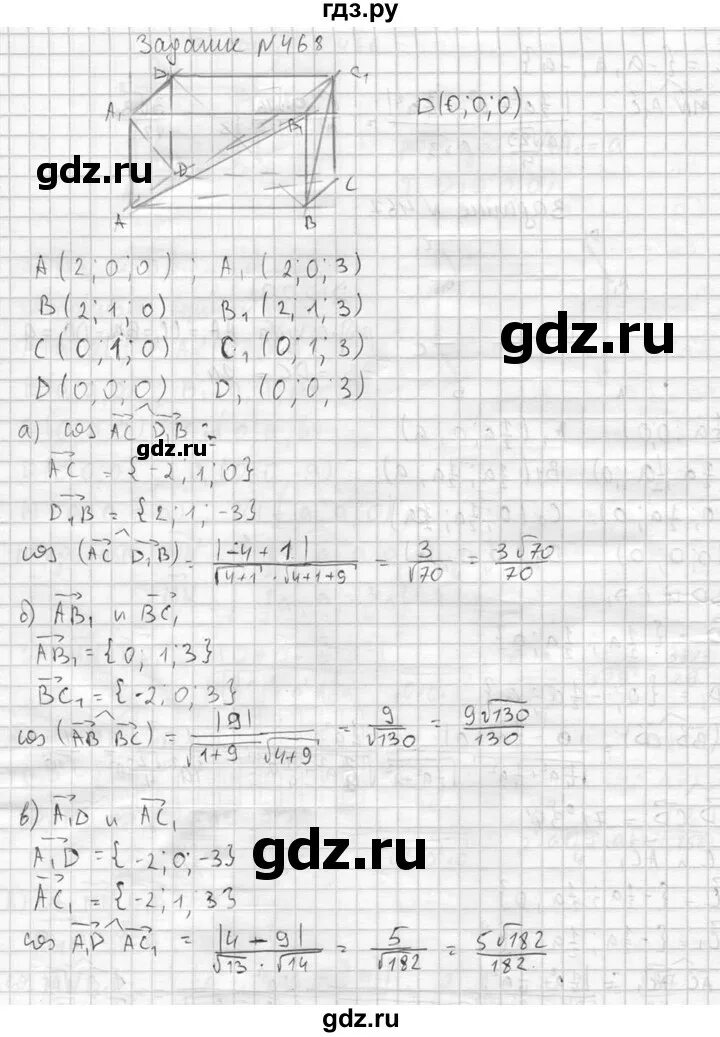 гдз.ру
Задание №468
D₁ C₁
A₁ B₁ D(0;0;0)
gdz.ru
D C
A B
A(2;0;0); A₁(2;0;3)
B(2;1;0) B₁(2;1;3)
gdz.ru
C(0;1;0) C₁(0;1;3)
D(0;0;0) D₁(0;0;3)
а) cos AC^D₁B = ?
gdz.ru
AC = {-2;1;0}
D₁B = {2;1;-3}
cos(AC^D₁B) = |-4+1| / √(4+1)·√(4+1+9) = 3/√70 = 3√70/70
б) AB₁ и BC₁
AB₁ = {0;1;3}
BC₁ = {-2;0;3}
cos(AB^BC) = |9| / √(1+9) √(4+9) = 9/√130 = 9√130/130
в) A₁D и AC₁
gdz.ru
A₁D = {-2;0;-3}
AC₁ = {-2;1;3}
cos A₁D^AC₁ = |4-9| / √13·√14 = 5/√182 = 5√182/182.
gdz.ru